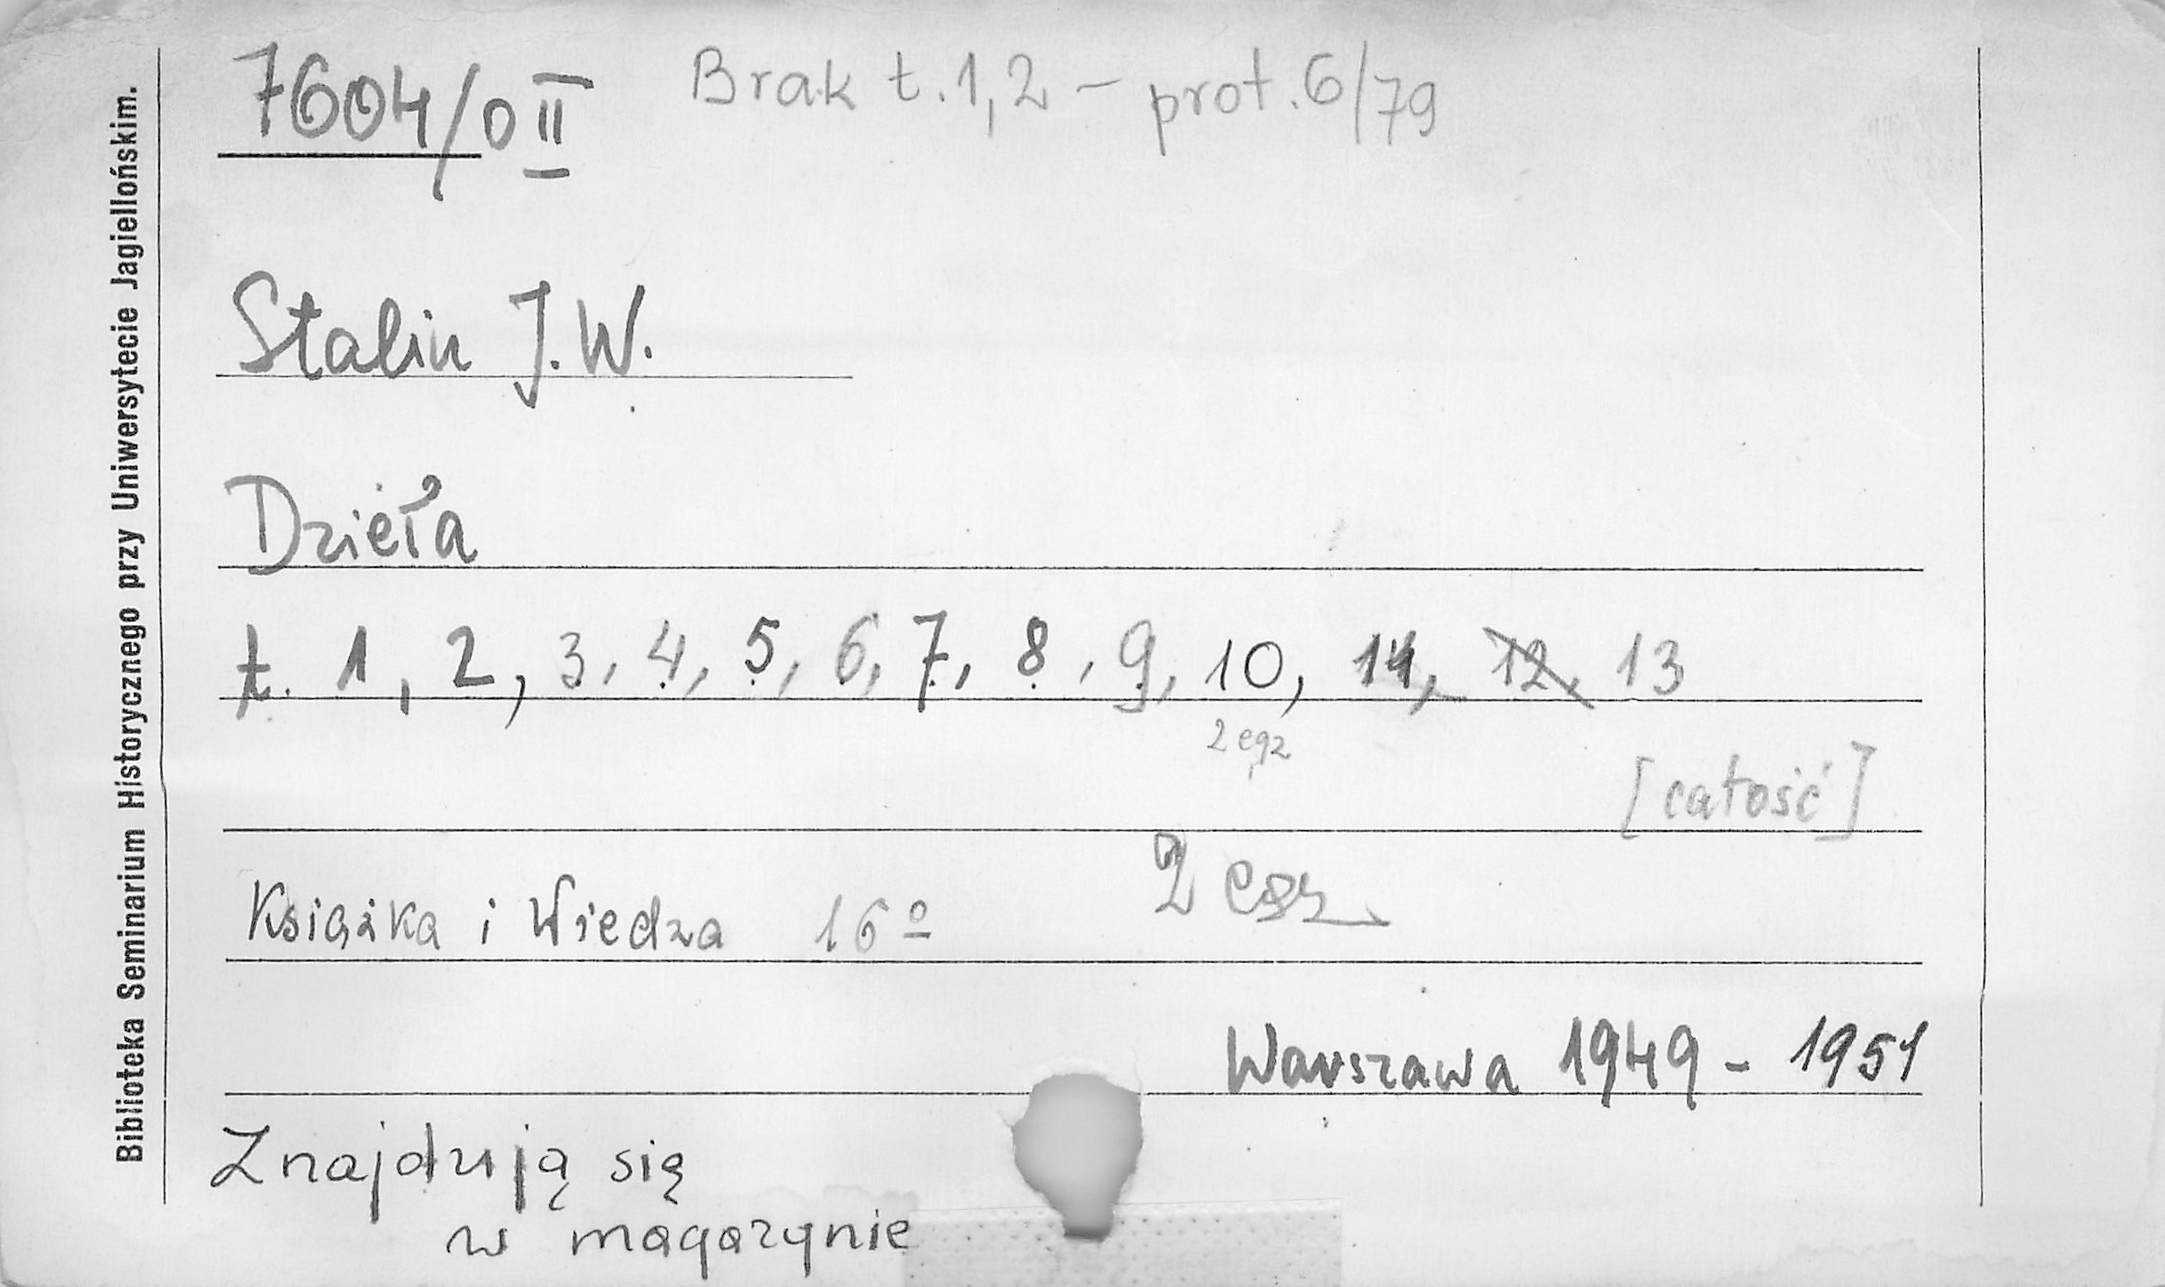 7604/0 II Brak t. 1, 2 – prot. 6/79
Stalin J. W.
Dzieła
t. 1, 2, 3, 4, 5, 6, 7, 8, 9, 10, 11, 12, 13
2 egz
[całość]
Książka i Wiedza 16º 2 egz
Warszawa 1949 - 1951
Znajdują się
w magazynie
Biblioteka Seminarium Historycznego przy Uniwersytecie Jagiellońskim.